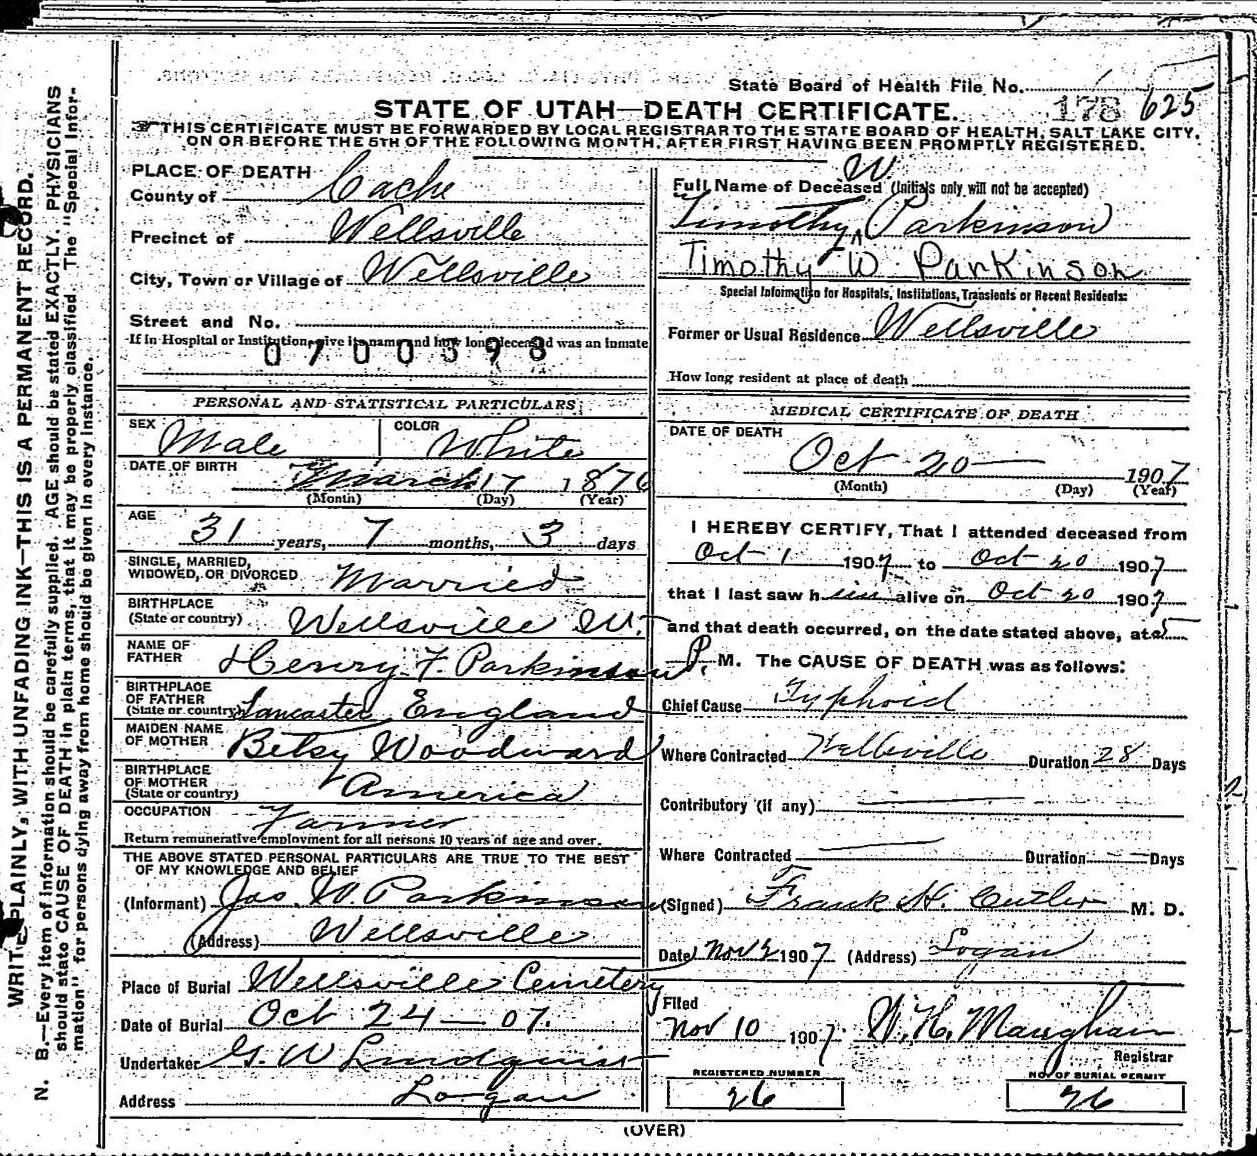 State Board of Health File No. 178 625
STATE OF UTAH—DEATH CERTIFICATE.
THIS CERTIFICATE MUST BE FORWARDED BY LOCAL REGISTRAR TO THE STATE BOARD OF HEALTH, SALT LAKE CITY,
ON OR BEFORE THE 5TH OF THE FOLLOWING MONTH, AFTER FIRST HAVING BEEN PROMPTLY REGISTERED.
WRITE PLAINLY, WITH UNFADING INK—THIS IS A PERMANENT RECORD.
N. B.—Every item of information should be carefully supplied. AGE should be stated EXACTLY. PHYSICIANS
should state CAUSE OF DEATH in plain terms, that it may be properly classified. The "Special Infor-
mation" for persons dying away from home should be given in every instance.
PLACE OF DEATH
County of Cache
Precinct of Wellsville
City, Town or Village of Wellsville
Street and No.
If in Hospital or Institution, give its name and how long deceased was an inmate
0700598
PERSONAL AND STATISTICAL PARTICULARS
SEX Male COLOR White
DATE OF BIRTH March 17 1876
(Month) (Day) (Year)
AGE 31 years, 7 months, 3 days
SINGLE, MARRIED,
WIDOWED, OR DIVORCED Married
BIRTHPLACE
(State or country) Wellsville Ut.
NAME OF
FATHER Henry F. Parkinson
BIRTHPLACE
OF FATHER
(State or country) Lancaster England
MAIDEN NAME
OF MOTHER Betsy Woodward
BIRTHPLACE
OF MOTHER
(State or country) America
OCCUPATION Farmer
Return remunerative employment for all persons 10 years of age and over.
THE ABOVE STATED PERSONAL PARTICULARS ARE TRUE TO THE BEST
OF MY KNOWLEDGE AND BELIEF
(Informant) Jas. W. Parkinson
(Address) Wellsville
Place of Burial Wellsville Cemetery
Date of Burial Oct 24 — 07.
Undertaker G. W Lindquist
Address Logan
W.
Full Name of Deceased (Initials only will not be accepted)
Timothy ^ Parkinson
Timothy W Parkinson
Special Information for Hospitals, Institutions, Transients or Recent Residents:
Former or Usual Residence Wellsville
How long resident at place of death
MEDICAL CERTIFICATE OF DEATH
DATE OF DEATH
Oct 20 — 1907
(Month) (Day) (Year)
I HEREBY CERTIFY, That I attended deceased from
Oct 1 1907 to Oct 20 1907
that I last saw him alive on Oct 20 1907
and that death occurred, on the date stated above, at 5
P. M. The CAUSE OF DEATH was as follows:
Chief Cause Typhoid
Where Contracted Wellsville Duration 28 Days
Contributory (if any) —
Where Contracted — Duration — Days
(Signed) Frank H. Cutler M. D.
Date Nov 2 1907 (Address) Logan
Filed
Nov 10 1907. W. H. Maughan
Registrar
REGISTERED NUMBER
26
NO. OF BURIAL PERMIT
26
(OVER)